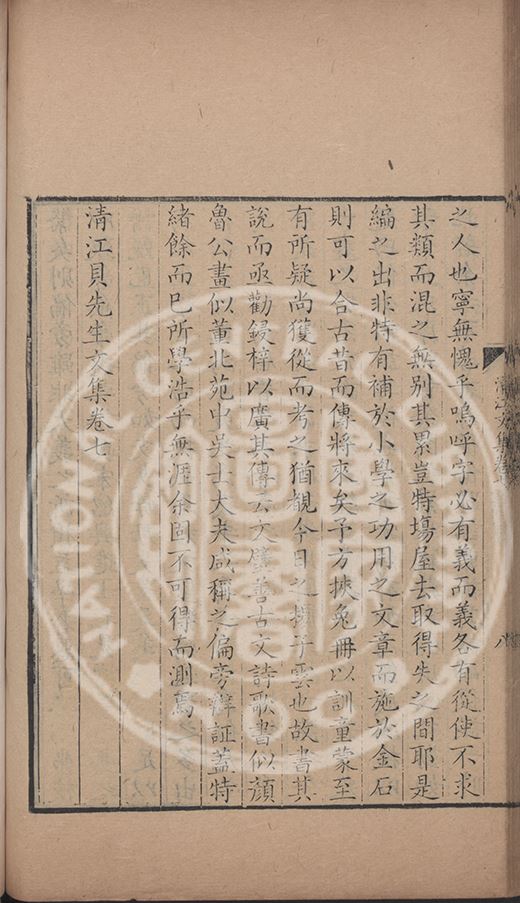 之人也寧無愧乎嗚呼字必有義而義各有從使不求
其類而混之無別其累豈特塲屋去取得失之間耶是
編之出非特有補於小學之功用之文章而施於金石
則可以合古昔而傳將來矣予方挾兔冊以訓童蒙至
有所疑尚獲從而考之猶覩今日之揚子雲也故書其
說而亟勸鋟梓以廣其傳云文璧善古文詩歌書似顔
魯公畫似董北苑中吳士大夫咸稱之偏旁辯証蓋特
緒餘而已所學浩乎無涯余固不可得而測焉
清江貝先生文集卷七
清江文集卷
八